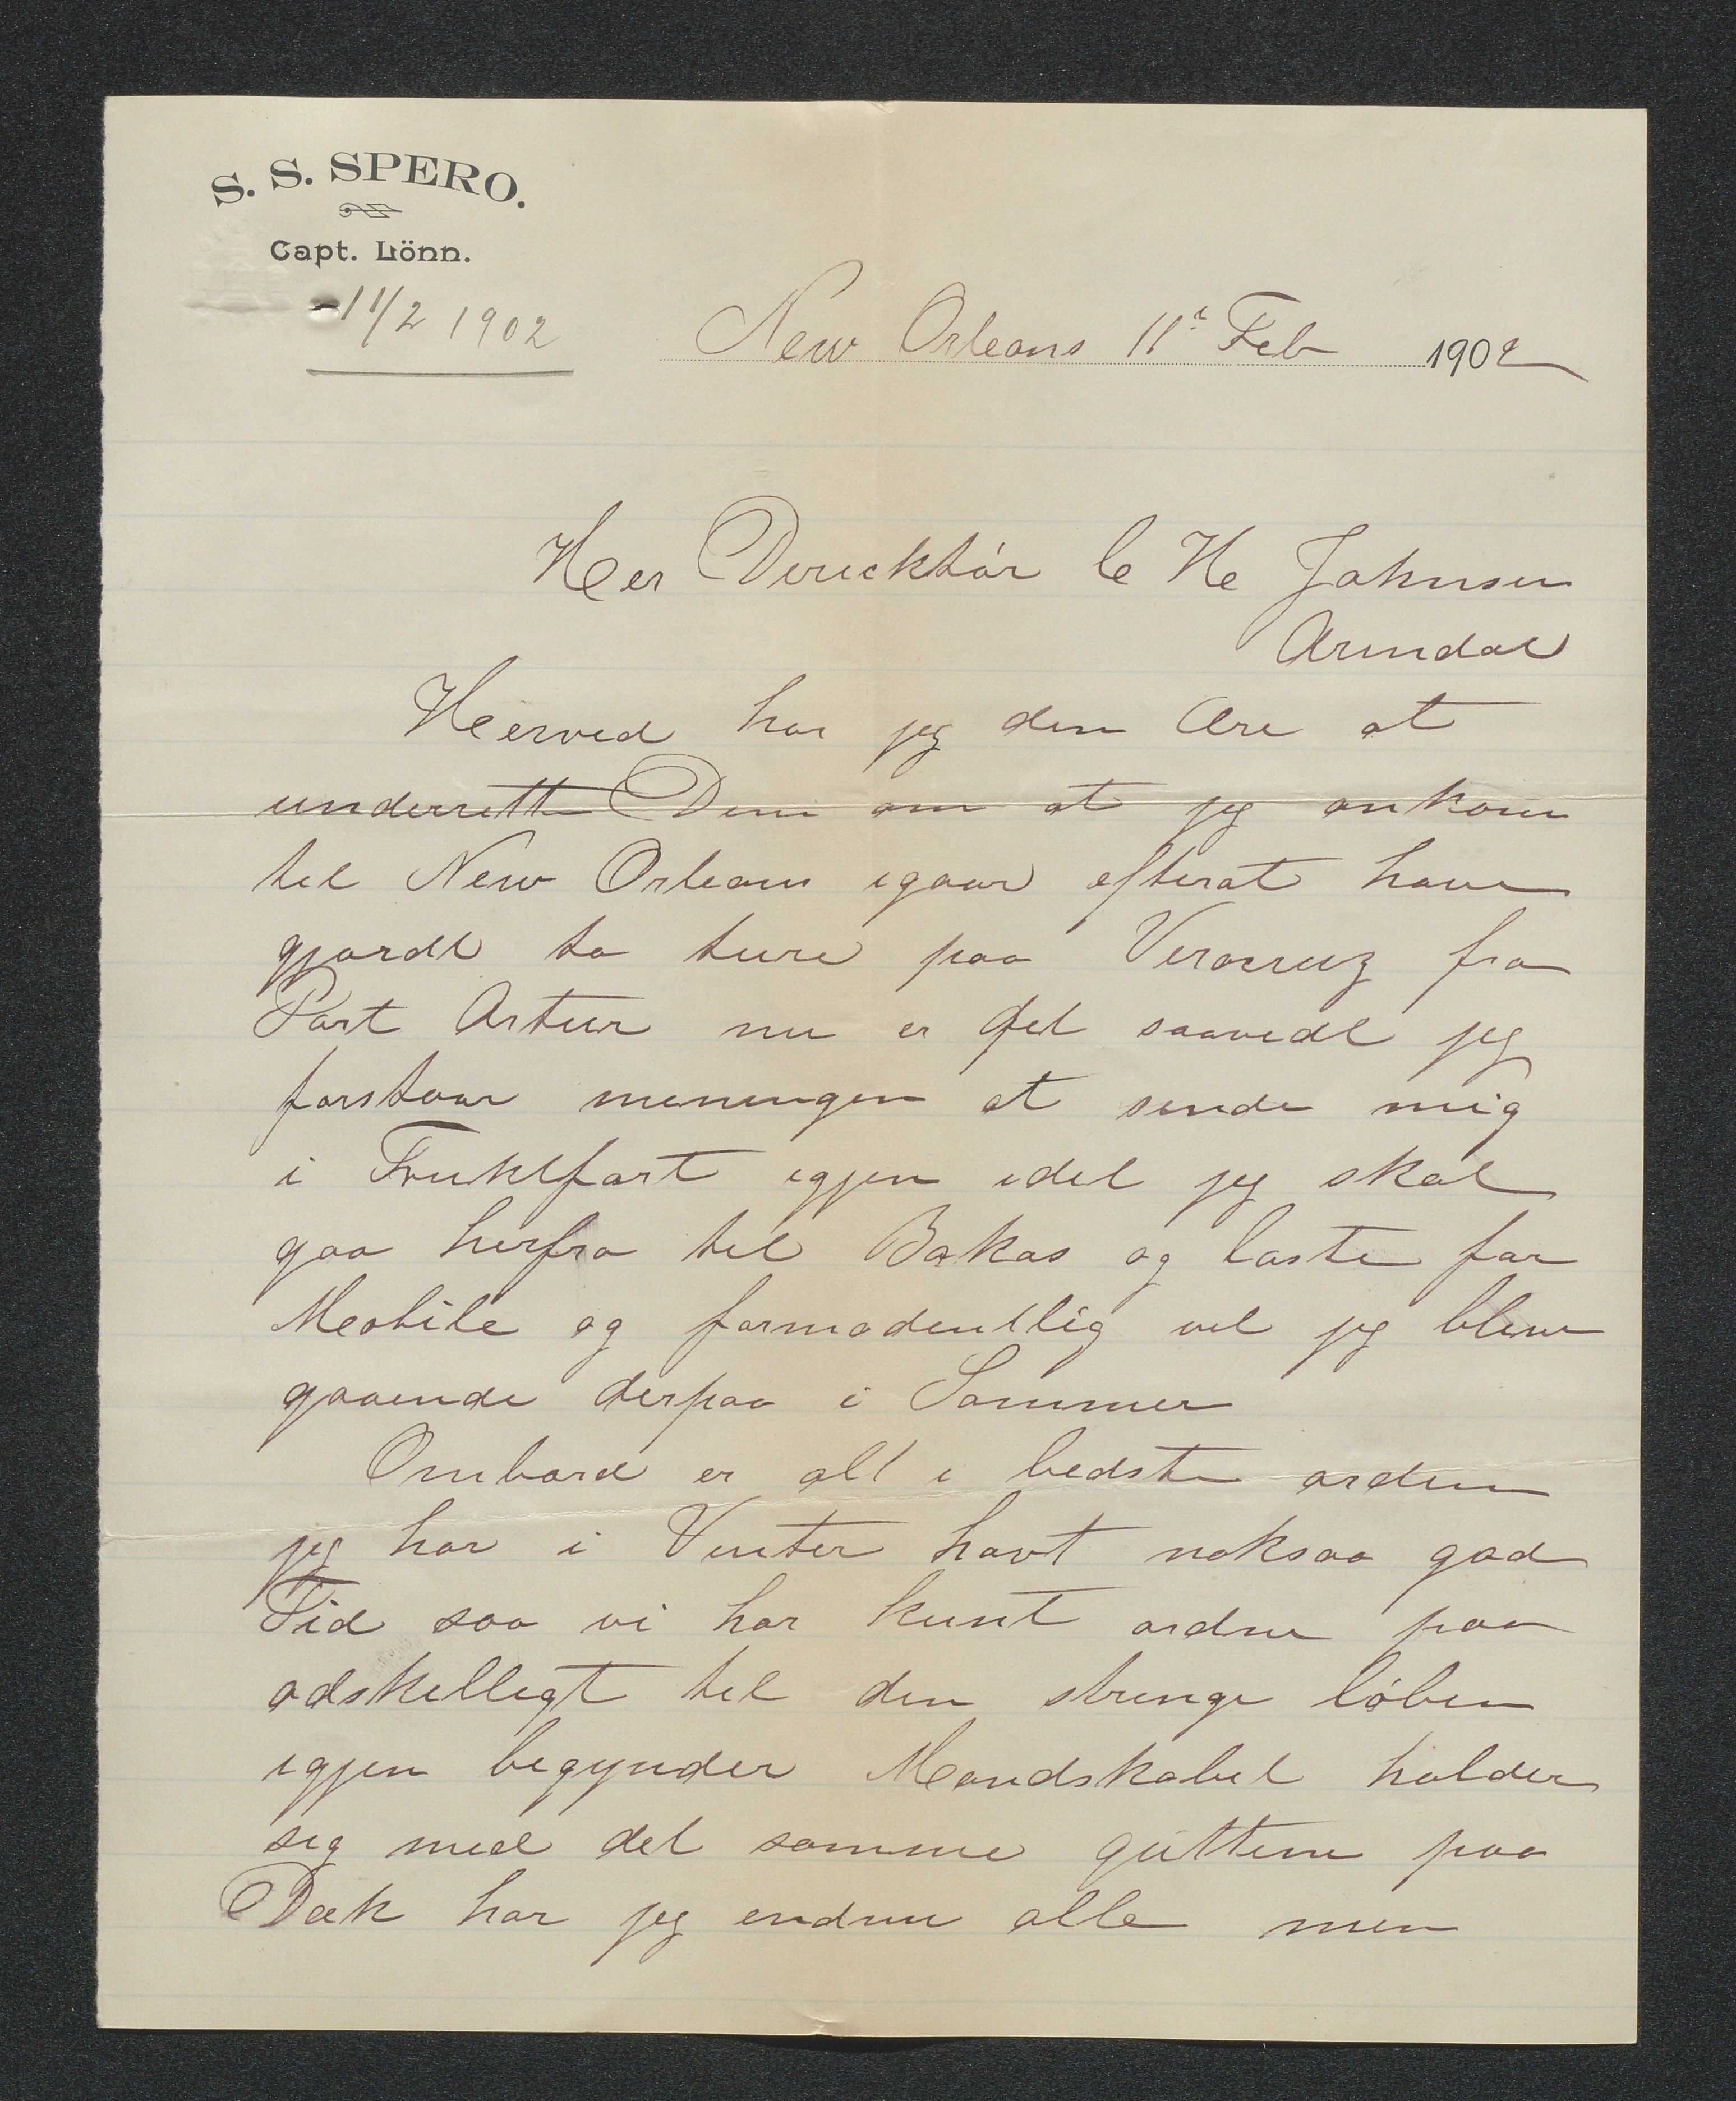 S. S. SPERO.
Capt. Lönn.
-11/2 1902
New Orleans 11te Feb 1902
Her Direcktör C H Johnsen
Arendal
Herved har jeg den Ære at
underrette Dem om at jeg ankom
til New Orleans igaar efterat have
gjordt to ture paa Veracruz fra
Port Artur nu er det saavedt jeg
forstaar meningen at sende mig
i Fruktfart igjen idet jeg skal
gaa herfra til Bokas og laste for
Mobile og formodentlig vil jeg blive
gaaende derpaa i Sommer
Ombord er alt i bedste orden
jeg har i Vinter havt noksaa god
Tid saa vi har kunt ordne paa
adskelligt til den strenge löben
igjen begynder Mandskabet holder
sig med det samme guttene paa
Dæk har jeg endnu alle men